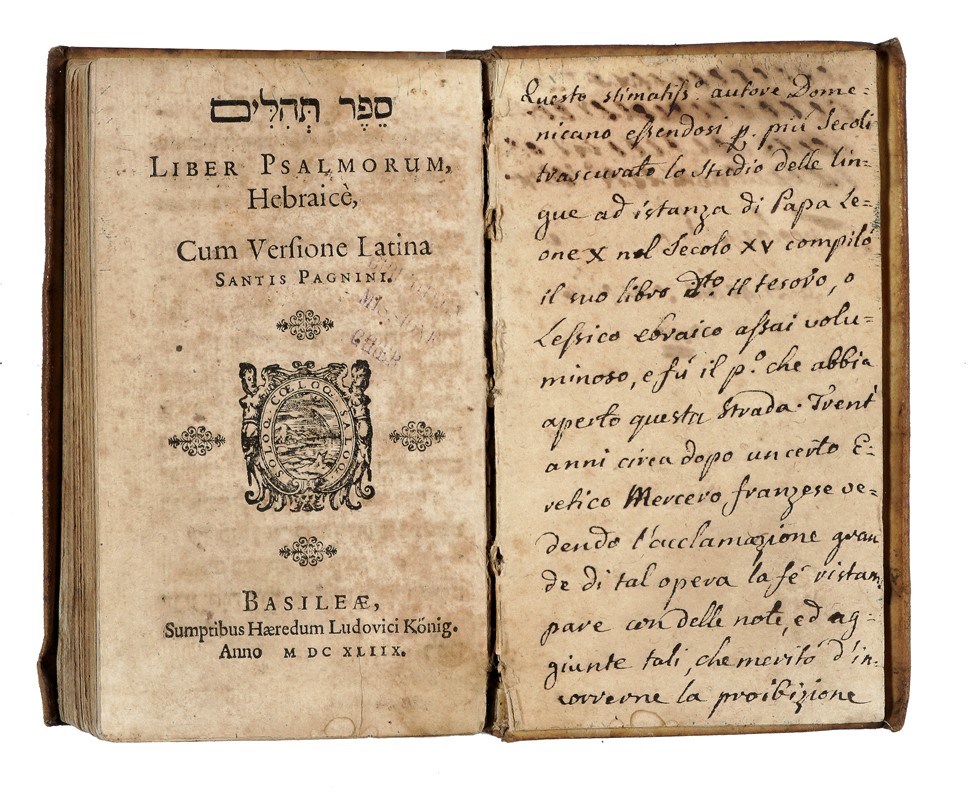 סֵפֶר תְּהִלִּים
LIBER PSALMORUM,
Hebraicè,
Cum Verſione Latina
SANTIS PAGNINI.
SOLOQ. CŒLOQ. SALOQ.
BASILEÆ,
Sumptibus Hæredum Ludovici König.
Anno M DC XLIIX.
Questo stimatiſs.º autore Dome=
nicano eſsendosi p. più Secoli
trascurato lo Studio delle lin=
gue ad istanza di Papa Le=
one X nel Secolo XV compilò
il suo libro d.to Il tesoro, o
Leſsico ebraico aſsai volu=
minoso, e fù il p.º che abbia
aperto questa Strada. Trent'
anni circa dopo un certo E=
retico Mercero franzese ve=
dendo l'acclamazione gran
de di tal opera la fé ristam
pare con delle note, ed ag=
giunte tali, che meritò d'in=
correrne la proibizione